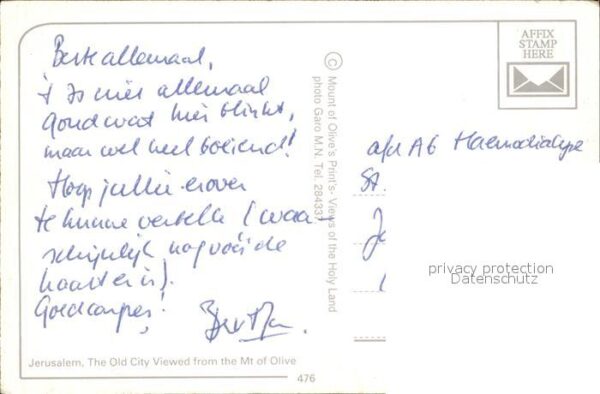 Beste allemaal,
't Is niet allemaal
goud wat hier blinkt,
maar wel heel boeiend!
Hoop jullie erover
te kunne vertelle (waar-
schijnlijk nog vóór de
kaart er is).
Goedkanper!
AFFIX
STAMP
HERE
© Mount of Olive's Print's- Views of the Holy Land
photo Garo M.N. Tel. 284337
afd A6 Haemodialyse
St.
privacy protection
Datenschutz
Jerusalem, The Old City Viewed from the Mt of Olive
476